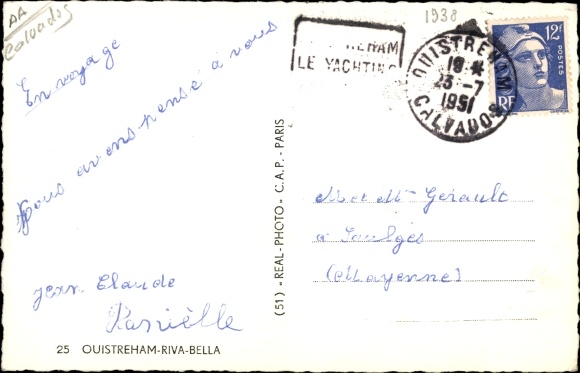 AA
Calvados
1938
EHAM
LE YACHTING
OUISTREHAM
18 H
23 -7
1951
CALVADOS
12F
POSTES
RF
En voyage
Nous avons pensé à vous
Jean Claude
Danièlle
25 OUISTREHAM-RIVA-BELLA
(51) - REAL-PHOTO - C.A.P. - PARIS
M et Mme Gerault
à Saulges
(Mayenne)